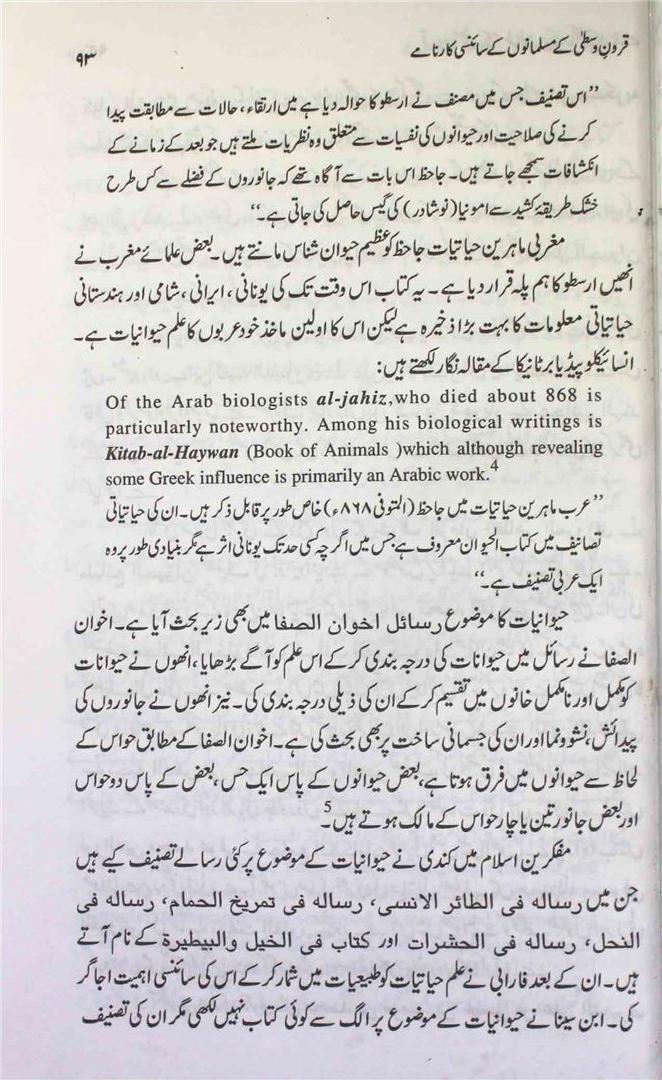 قرونِ وسطیٰ کے مسلمانوں کے سائنسی کارنامے ۹۳
”اس تصنیف جس میں مصنف نے ارسطو کا حوالہ دیا ہے میں ارتقاء، حالات سے مطابقت پیدا
کرنے کی صلاحیت اور حیوانوں کی نفسیات سے متعلق وہ نظریات ملتے ہیں جو بعد کے زمانے کے
انکشافات سمجھے جاتے ہیں۔ جاحظ اس بات سے آگاہ تھے کہ جانوروں کے فضلے سے کس طرح
خشک طریقۂ کشید سے امونیا (نوشادر) کی گیس حاصل کی جاتی ہے۔“
مغربی ماہرین حیاتیات جاحظ کو عظیم حیوان شناس مانتے ہیں۔ بعض علمائے مغرب نے
انھیں ارسطو کا ہم پلہ قرار دیا ہے۔ یہ کتاب اس وقت تک کی یونانی، ایرانی، شامی اور ہندستانی
حیاتیاتی معلومات کا بہت بڑا ذخیرہ ہے لیکن اس کا اولین ماخذ خود عربوں کا علم حیوانیات ہے۔
انسائیکلوپیڈیا برٹانیکا کے مقالہ نگار لکھتے ہیں:
Of the Arab biologists al-jahiz,who died about 868 is
particularly noteworthy. Among his biological writings is
Kitab-al-Haywan (Book of Animals )which although revealing
some Greek influence is primarily an Arabic work.4
”عرب ماہرین حیاتیات میں جاحظ (المتوفی ۸۶۸ء) خاص طور پر قابل ذکر ہیں۔ ان کی حیاتیاتی
تصانیف میں کتاب الحیوان معروف ہے جس میں اگرچہ کسی حد تک یونانی اثر ہے مگر بنیادی طور پر وہ
ایک عربی تصنیف ہے۔“
حیوانیات کا موضوع رسائل اخوان الصفا میں بھی زیر بحث آیا ہے۔ اخوان
الصفا نے رسائل میں حیوانات کی درجہ بندی کرکے اس علم کو آگے بڑھایا، انھوں نے حیوانات
کو مکمل اور نامکمل خانوں میں تقسیم کرکے ان کی ذیلی درجہ بندی کی۔ نیز انھوں نے جانوروں کی
پیدائش، نشوونما اور ان کی جسمانی ساخت پر بھی بحث کی ہے۔ اخوان الصفا کے مطابق حواس کے
لحاظ سے حیوانوں میں فرق ہوتا ہے، بعض حیوانوں کے پاس ایک حس، بعض کے پاس دو حواس
اور بعض جانور تین یا چار حواس کے مالک ہوتے ہیں۔5
مفکرین اسلام میں کندی نے حیوانیات کے موضوع پر کئی رسالے تصنیف کیے ہیں
جن میں رسالہ فی الطائر الانسی، رسالہ فی تمریخ الحمام، رسالہ فی
النحل، رسالہ فی الحشرات اور کتاب فی الخیل والبیطیرة کے نام آتے
ہیں۔ ان کے بعد فارابی نے علم حیاتیات کو طبیعیات میں شمار کرکے اس کی سائنسی اہمیت اجاگر
کی۔ ابن سینا نے حیوانیات کے موضوع پر الگ سے کوئی کتاب نہیں لکھی مگر ان کی تصنیف